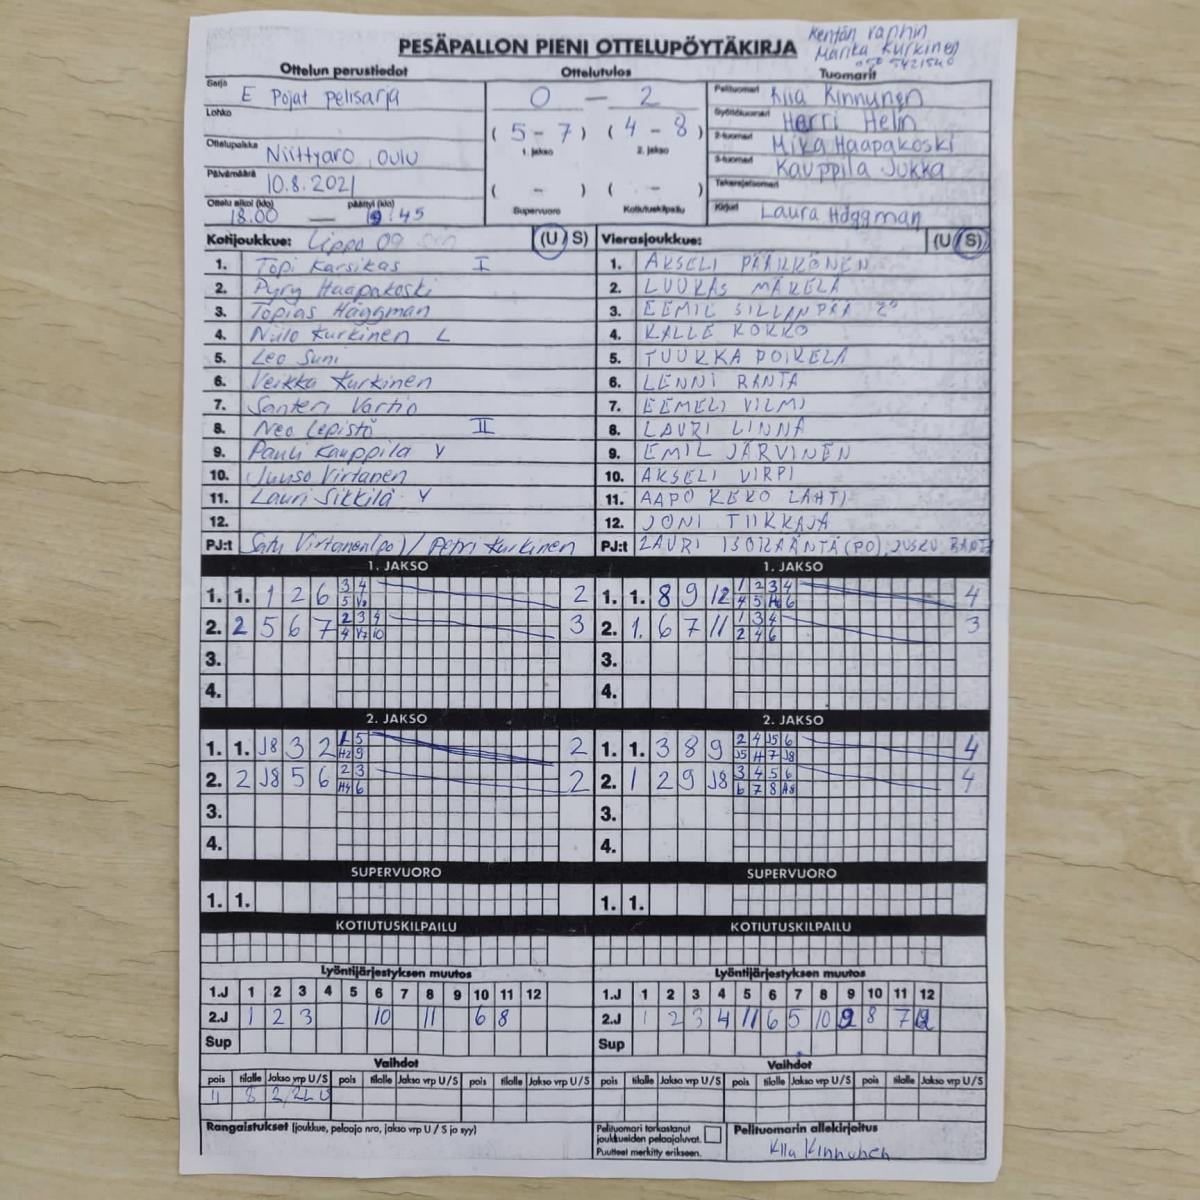 Kentän vanhin
PESÄPALLON PIENI OTTELUPÖYTÄKIRJA
Marika Kurkinen
Ottelun perustiedot Ottelutulos Tuomarit
Sarja E Pojat pelisarja 0 – 2 Pelituomari Kiia Kinnunen
Lohko (5 – 7) (4 – 8) Syöttötuomari Harri Helin
1. jakso 2. jakso 2-tuomari Mika Haapakoski
Ottelupaikka Niittyaro, Oulu 3-tuomari Kauppila Jukka
Päivämäärä 10.8.2021 ( – ) ( – ) Takarajatuomari
Ottelu alkoi (klo) päättyi (klo) Supervuoro Kotiutuskilpailu
18.00 — 19:45 Kirjuri Laura Häggman
Kotijoukkue: Lippo 09 (U/S) Vierasjoukkue: (U/S)
1. Topi Karsikas I 1. AKSELI PÄÄKKÖNEN
2. Pyry Haapakoski 2. LUUKAS MÄKELÄ
3. Topias Häggman 3. EEMIL SILLANPÄÄ
4. Niilo Kurkinen L 4. KALLE KOKKO
5. Leo Suni 5. TUUKKA POIKELA
6. Veikka Kurkinen 6. LENNI RANTA
7. Santeri Vartio 7. EEMELI VILMI
8. Neo Lepistö II 8. LAURI LINNA
9. Pauli Kauppila V 9. EMIL JÄRVINEN
10. Juuso Virtanen 10. AKSELI VIRPI
11. Lauri Sikkilä V 11. AAPO KEKOLAHTI
12. 12. JONI TIIKKAJA
PJ:t Satu Virtanen(po) / Petri Kurkinen PJ:t LAURI ISORÄÄNTÄ (PO),
1. JAKSO 1. JAKSO
1. 1. 1 2 6 3 4 2 1. 1. 8 9 12 1 2 3 4 4
5 4 5 H6 6
2. 2 5 6 7 2 3 4 3 2. 1. 6 7 11 1 3 4 3
4 V7 10 2 4 6
3. 3.
4. 4.
2. JAKSO 2. JAKSO
1. 1. J8 3 2 1 5 2 1. 1. 3 8 9 2 4 J5 6 4
H2 9 J5 H 7 J8
2. 2 J8 5 6 2 3 2 2. 1 2 9 J8 3 4 5 6 4
H4 6 6 7 8 A8
3. 3.
4. 4.
SUPERVUORO SUPERVUORO
1. 1. 1. 1.
KOTIUTUSKILPAILU KOTIUTUSKILPAILU
Lyöntijärjestyksen muutos Lyöntijärjestyksen muutos
1.J 1 2 3 4 5 6 7 8 9 10 11 12 1.J 1 2 3 4 5 6 7 8 9 10 11 12
2.J 1 2 3 10 11 6 8 2.J 1 2 3 4 11 6 5 10 9 8 7 12
Sup Sup
Vaihdot Vaihdot
pois tilalle Jakso vrp U/S pois tilalle Jakso vrp U/S pois tilalle Jakso vrp U/S pois tilalle Jakso vrp U/S pois tilalle Jakso vrp U/S pois tilalle Jakso vrp U/S
11 8
Rangaistukset (joukkue, pelaaja nro, jakso vrp U / S ja syy) Pelituomari tarkastanut Pelituomarin allekirjoitus
joukkueiden pelaajaluvat.
Puutteet merkitty erikseen. Kiia Kinnunen